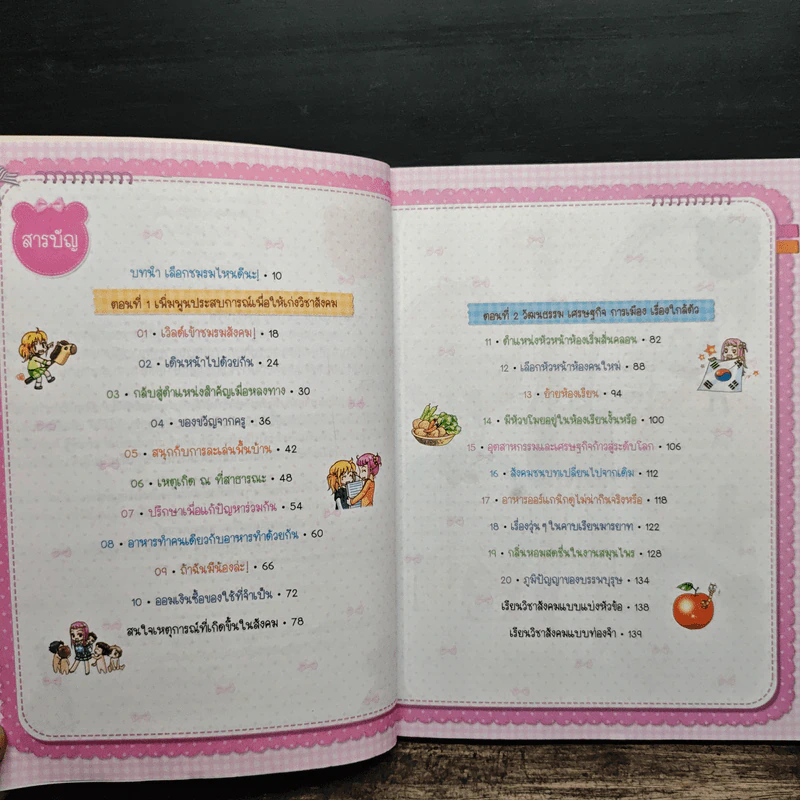 สารบัญ
บทนำ เลือกชมรมไหนดีนะ! • 10
ตอนที่ 1 เพิ่มพูนประสบการณ์เพื่อให้เก่งวิชาสังคม
01 • เวิลด์เข้าชมรมสังคม! • 18
02 • เดินหน้าไปด้วยกัน • 24
03 • กลับสู่ตำแหน่งสำคัญเมื่อหลงทาง • 30
04 • ของขวัญจากครู • 36
05 • สนุกกับการละเล่นพื้นบ้าน • 42
06 • เหตุเกิด ณ ที่สาธารณะ • 48
07 • ปรึกษาเพื่อแก้ปัญหาร่วมกัน • 54
08 • อาหารทำคนเดียวกับอาหารทำด้วยกัน • 60
09 • ถ้าฉันมีน้องล่ะ! • 66
10 • ออมเงินซื้อของใช้ที่จำเป็น • 72
สนใจเหตุการณ์ที่เกิดขึ้นในสังคม • 78
ตอนที่ 2 วัฒนธรรม เศรษฐกิจ การเมือง เรื่องใกล้ตัว
11 • ตำแหน่งหัวหน้าห้องเริ่มสั่นคลอน • 82
12 • เลือกหัวหน้าห้องคนใหม่ • 88
13 • ย้ายห้องเรียน • 94
14 • มีหัวขโมยอยู่ในห้องเรียนงั้นหรือ • 100
15 • อุตสาหกรรมและเศรษฐกิจก้าวสู่ระดับโลก • 106
16 • สังคมชนบทเปลี่ยนไปจากเดิม • 112
17 • อาหารออร์แกนิกดูไม่น่ากินจริงหรือ • 118
18 • เรื่องวุ่นๆ ในคาบเรียนมารยาท • 122
19 • กลิ่นหอมสดชื่นในงานสมุนไพร • 128
20 • ภูมิปัญญาของบรรพบุรุษ • 134
เรียนวิชาสังคมแบบแบ่งหัวข้อ • 138
เรียนวิชาสังคมแบบท่องจำ • 139